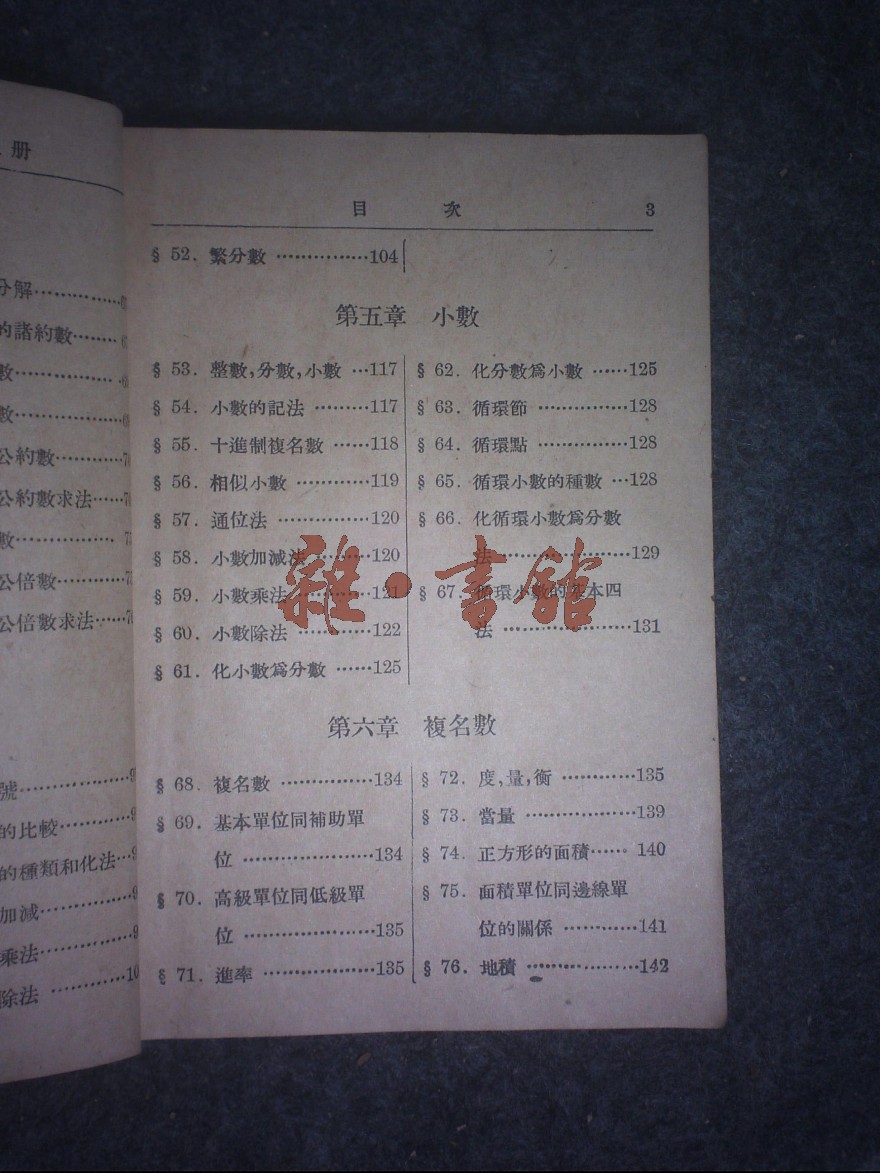 册
分解
的諸約數
數
數
公約數
公約數求法
數
公倍數
公倍數求法
號
的比較
的種類和化法
加減
乘法
除法
目 次 3
§ 52. 繁分數 ……………104
第五章 小數
§ 53. 整數,分數,小數 …117
§ 54. 小數的記法 ………117
§ 55. 十進制複名數 ……118
§ 56. 相似小數 …………119
§ 57. 通位法 ……………120
§ 58. 小數加減法 ………120
§ 59. 小數乘法 …………121
§ 60. 小數除法 …………122
§ 61. 化小數爲分數 ……125
§ 62. 化分數爲小數 ……125
§ 63. 循環節 ……………128
§ 64. 循環點 ……………128
§ 65. 循環小數的種數 …128
§ 66. 化循環小數爲分數
法 …………………129
§ 67. 循環小數的基本四
法 …………………131
雜·書館
第六章 複名數
§ 68. 複名數 ……………134
§ 69. 基本單位同補助單
位 …………………134
§ 70. 高級單位同低級單
位 …………………135
§ 71. 進率 ………………135
§ 72. 度,量,衡 …………135
§ 73. 當量 ………………139
§ 74. 正方形的面積…… 140
§ 75. 面積單位同邊線單
位的關係 …………141
§ 76. 地積 ………………142